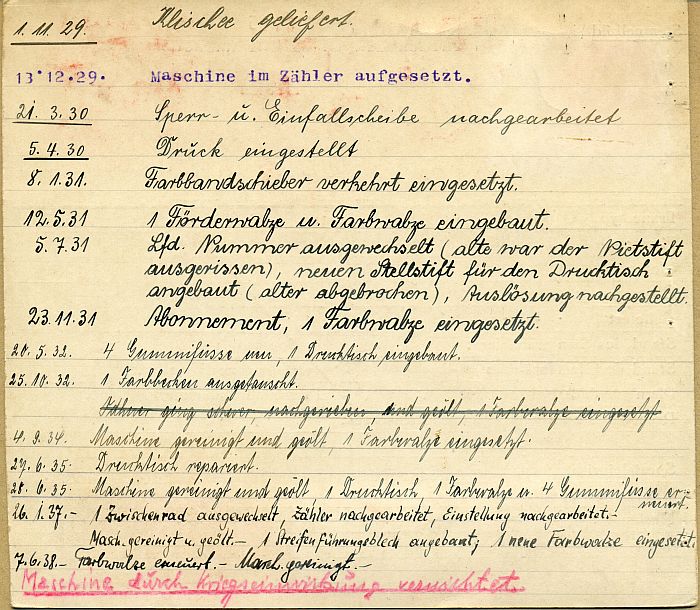 1. 11. 29. Klischee geliefert.
13.12.29. Maschine im Zähler aufgesetzt.
21. 3. 30 Sperr- u. Einfallscheibe nachgearbeitet
5. 4. 30 Druck eingestellt
8. 1. 31. Farbbandschieber verkehrt eingesetzt.
12. 5. 31 1 Förderwalze u. Farbwalze eingebaut.
5. 7. 31 Lfd. Nummer ausgewechselt (alte war der Nietstift
ausgerissen), neuen Stellstift für den Drucktisch
angebaut (alter abgebrochen), Auslösung nachgestellt.
23. 11. 31 Abonnement, 1 Farbwalze eingesetzt.
20. 5. 32. 4 Gummifüsse neu, 1 Drucktisch eingebaut.
25. 10. 32. 1 Farbbecken ausgetauscht.
Zählwer ging schwer, nachgerieben und geölt, 1 Farbwalze eingesetzt
4. 9. 34. Maschine gereinigt und geölt, 1 Farbwalze eingesetzt.
29. 6. 35. Drucktisch repariert.
28. 6. 35. Maschine gereinigt und geölt, 1 Drucktisch, 1 Farbwalze u. 4 Gummifüsse er-
neuert.
26. 1. 37.- 1 Zwischenrad ausgewechselt, Zähler nachgearbeitet, Einstellung nachgearbeitet.-
Masch. gereinigt u. geölt.- 1 Streifenführungsblech angebaut; 1 neue Farbwalze eingesetzt.
7. 6. 38.- Farbwalze erneuert.- Masch. gereinigt.-
Maschine durch Kriegseinwirkung vernichtet.